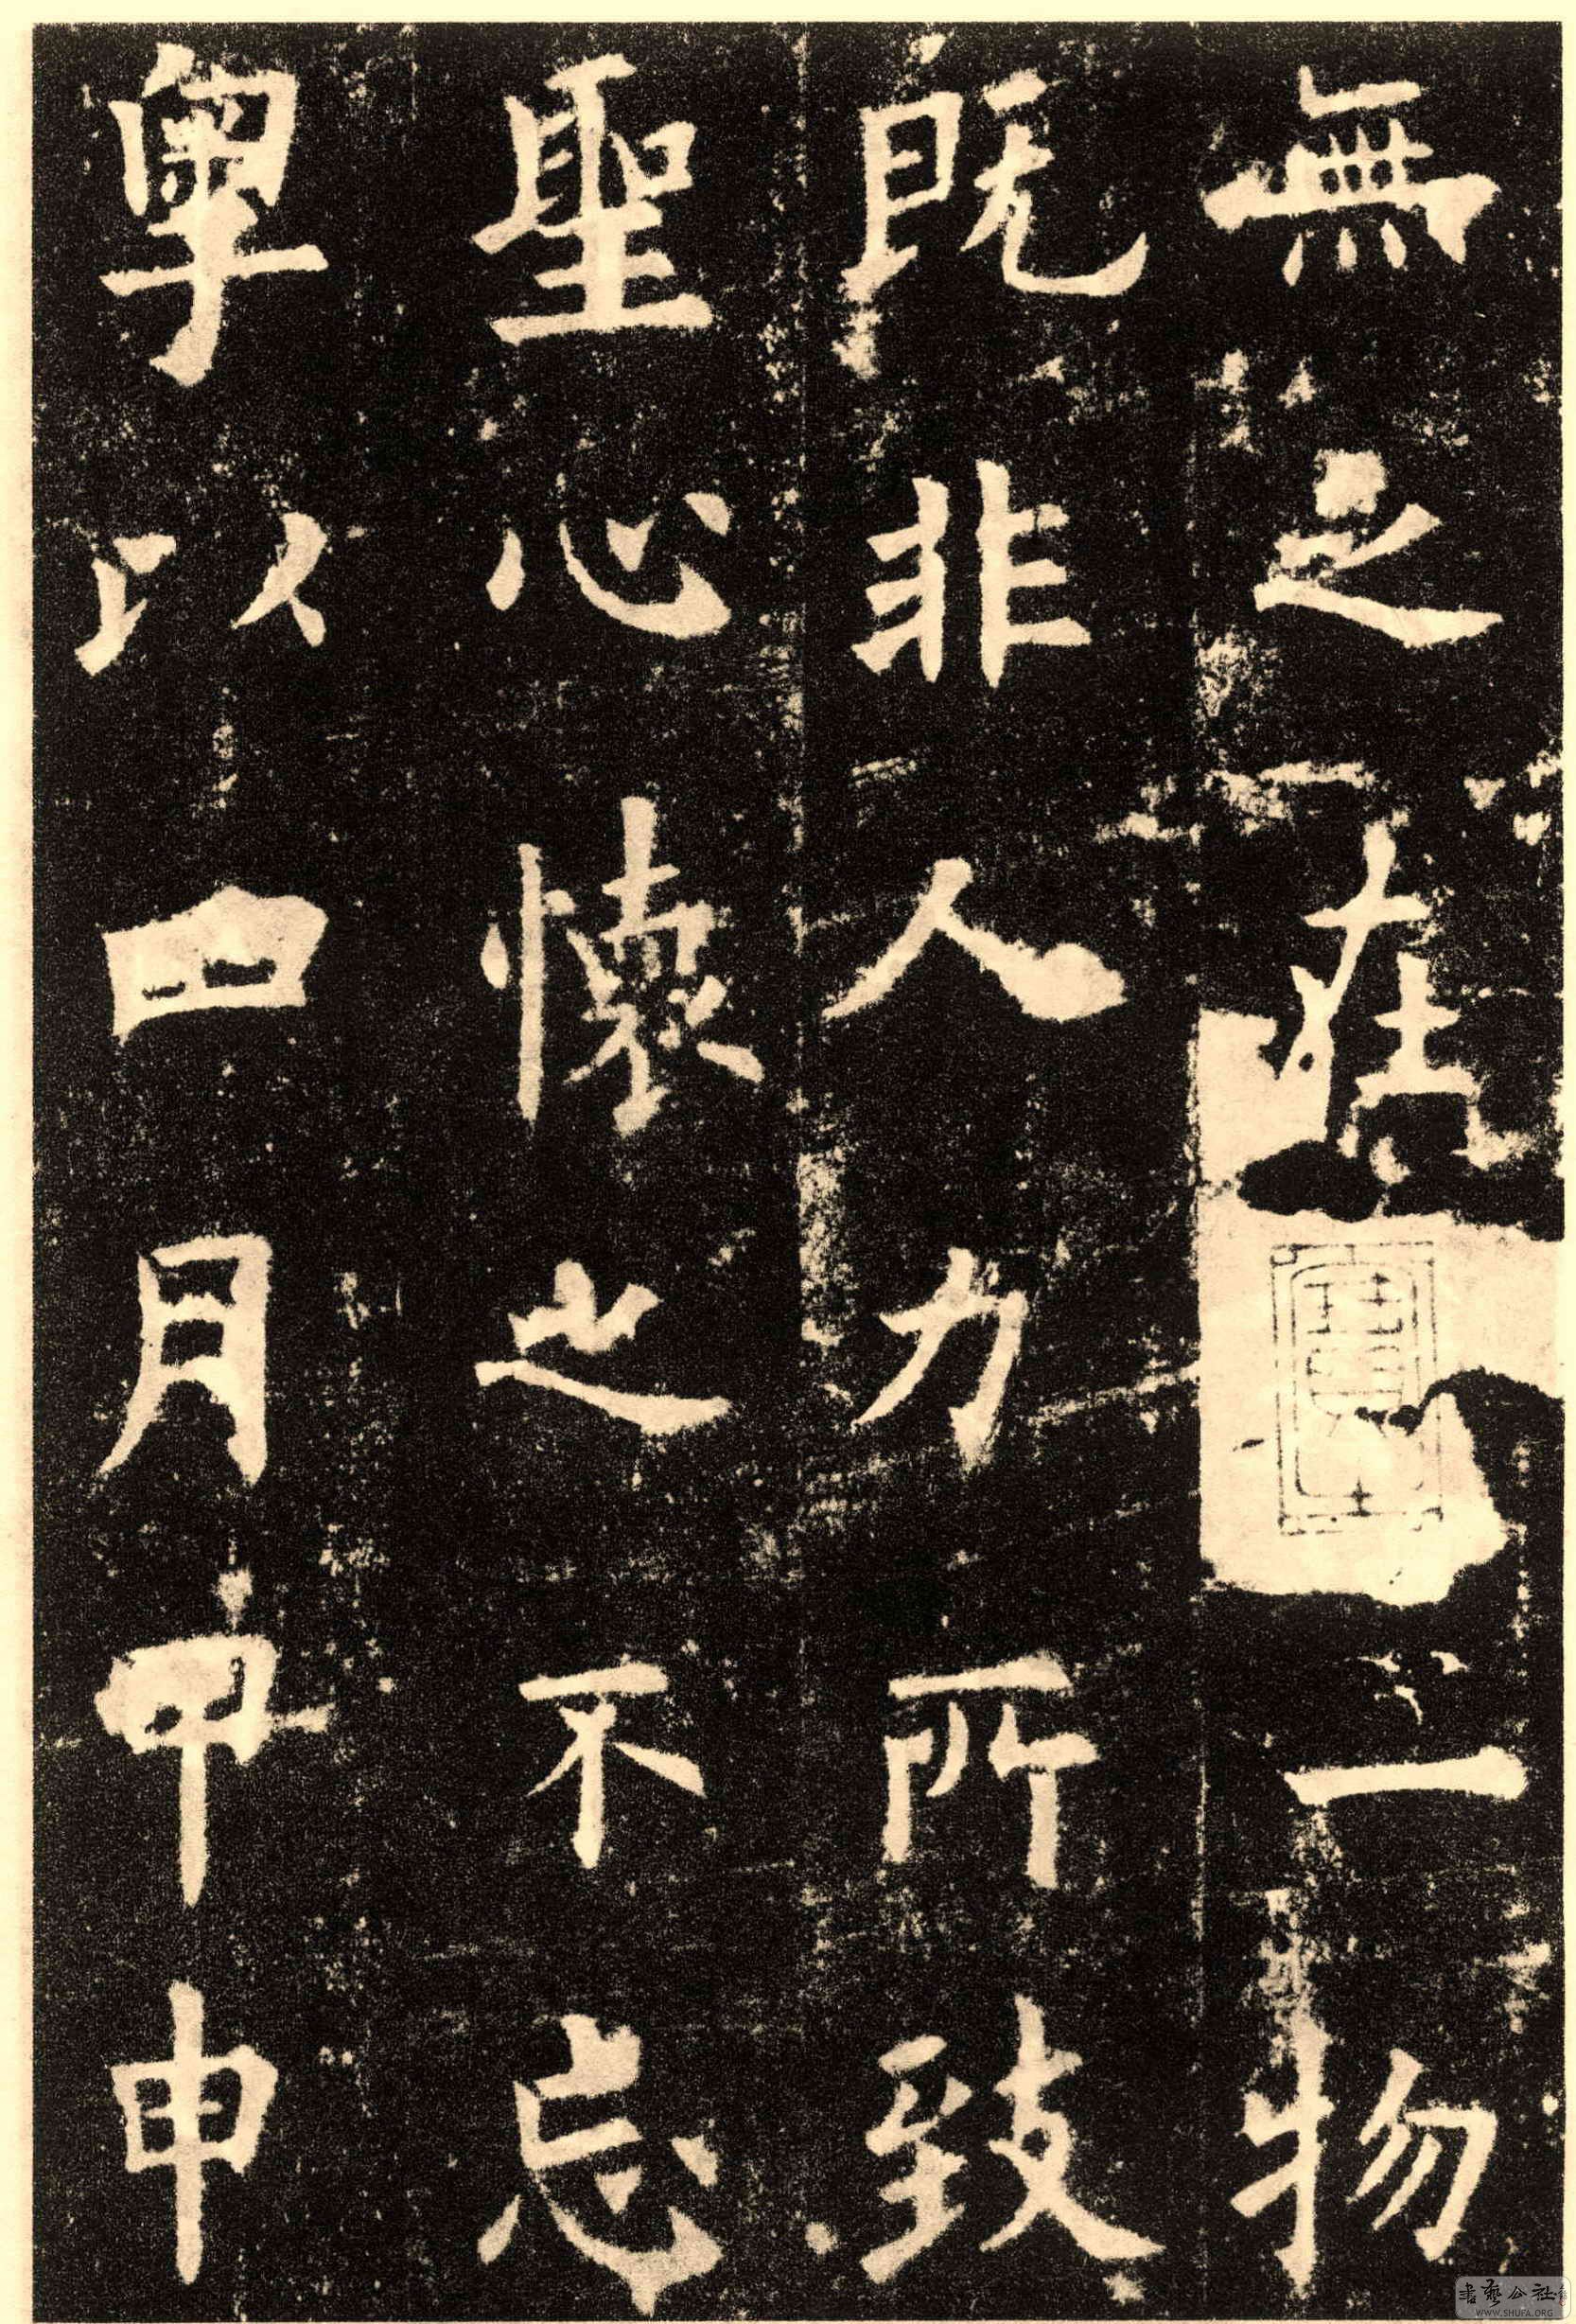 無之在一物
既非人力所致
聖心懷之不忘
粤以四月甲申
書艺公社
WWW.SHUFA.ORG